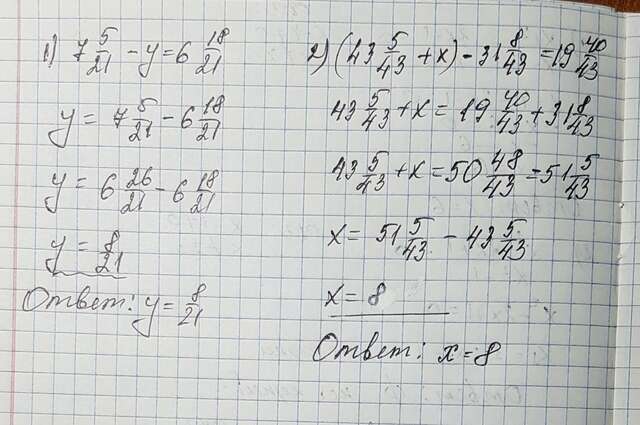 1) 7 5/21 - y = 6 18/21
y = 7 5/21 - 6 18/21
y = 6 26/21 - 6 18/21
y = 8/21
Ответ: y = 8/21
2) (43 5/43 + x) - 31 8/43 = 19 40/43
43 5/43 + x = 19 40/43 + 31 8/43
43 5/43 + x = 50 48/43 = 51 5/43
x = 51 5/43 - 43 5/43
x = 8
Ответ: x = 8